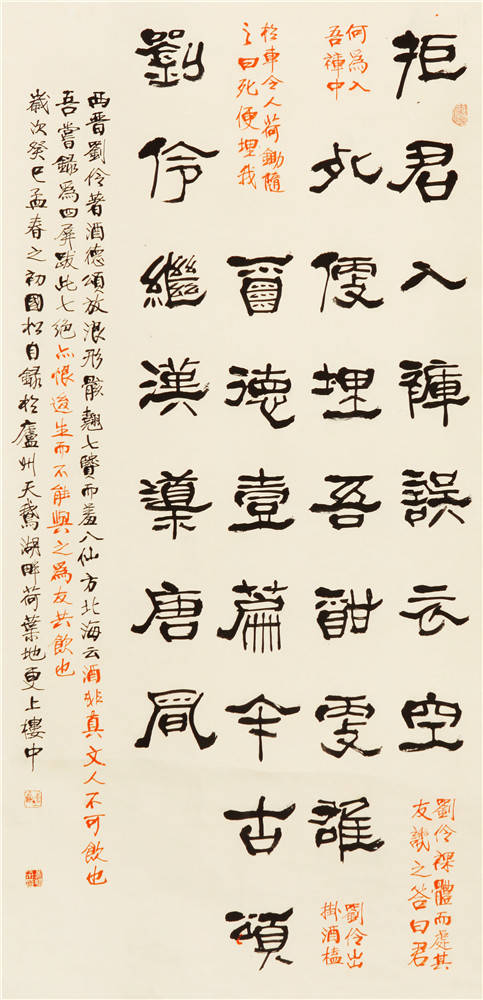 拒君入褲誤云空
劉伶裸體而處其
友譏之答曰君
何為入
吾褌中
死便埋吾酣更雄
劉伶出
掛酒榼
於車令人荷鋤隨
之曰死便埋我
酒德壹篇千古頌
劉伶繼漢導唐風
西晉劉伶著酒德頌放浪形骸翹七賢而羞八仙方北海云酒非真文人不可飲也
吾嘗錄為四屏跋此七絕亦恨後生而不能與之為友共飲也
歲次癸巳孟春之初國松自錄於廬州天鵝湖畔荷葉地更上樓中